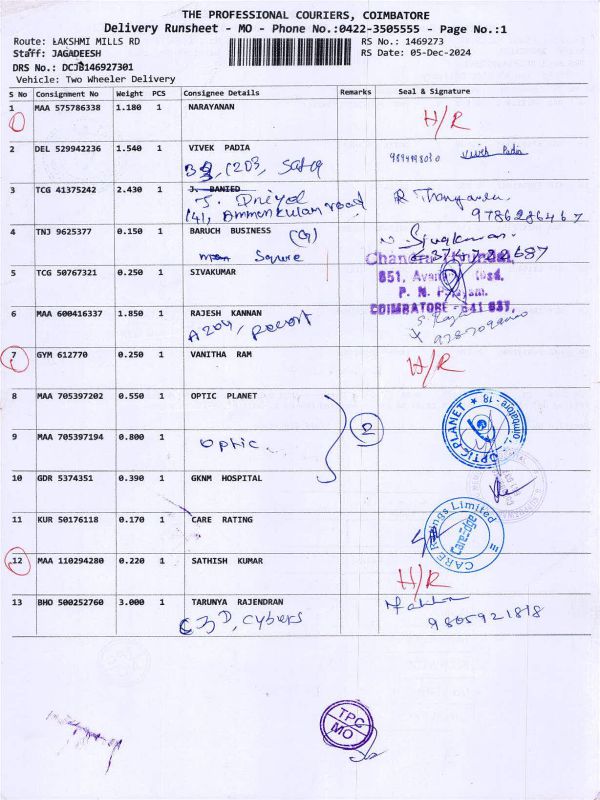 THE PROFESSIONAL COURIERS, COIMBATORE
Delivery Runsheet - MO - Phone No.:0422-3505555 - Page No.:1
Route: LAKSHMI MILLS RD RS No.: 1469273
Staff: JAGADEESH RS Date: 05-Dec-2024
DRS No.: DCJB146927301
Vehicle: Two Wheeler Delivery
S No Consignment No Weight PCS Consignee Details Remarks Seal & Signature
1 MAA 575786338 1.180 1 NARAYANAN
H/R
2 DEL 529942236 1.540 1 VIVEK PADIA
Vivek Padia
3 TCG 41375242 2.430 1 J. BANIED
J. Priya
141, Ammankulam road
9786286467
4 TNJ 9625377 0.150 1 BARUCH BUSINESS (G)
Square
Sivakumar
5 TCG 50767321 0.250 1 SIVAKUMAR
651, Avan
COIMBATORE - 641 037.
6 MAA 600416337 1.850 1 RAJESH KANNAN
A204,
7 GYM 612770 0.250 1 VANITHA RAM
H/R
8 MAA 705397202 0.550 1 OPTIC PLANET
2
OPTIC PLANET ★ Coimbatore - 18
9 MAA 705397194 0.800 1
Optic.
10 GDR 5374351 0.390 1 GKNM HOSPITAL
11 KUR 50176118 0.170 1 CARE RATING
CARE Ratings Limited
12 MAA 110294280 0.220 1 SATHISH KUMAR
H/R
13 BHO 500252760 3.000 1 TARUNYA RAJENDRAN
9865921818
TPC
MO